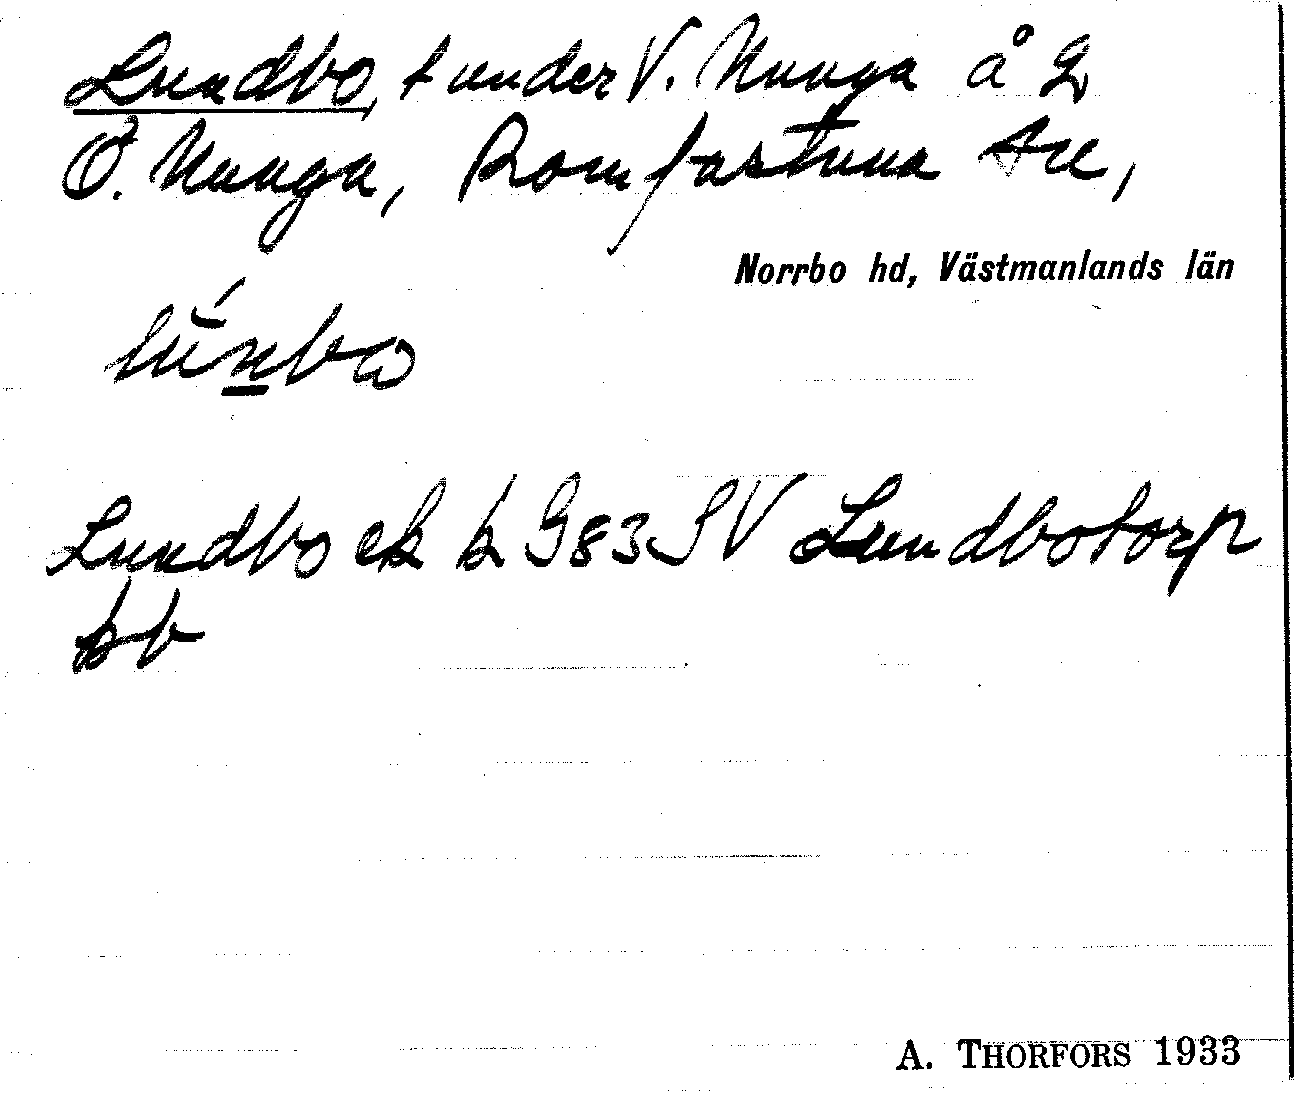 Lundbo, t under V. Nunga å G
Ö. Nunga, Romfartuna sn,
Norrbo hd, Västmanlands län
Lundbo ek G83SV Lundbotorp
A. THORFORS 1933